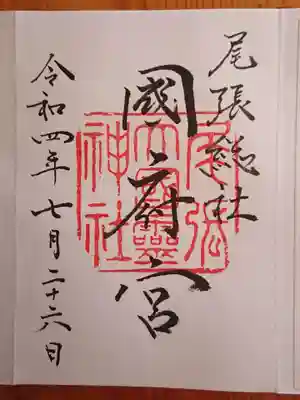 尾張総社
國府宮
尾張大國霊神社
令和四年七月二十六日